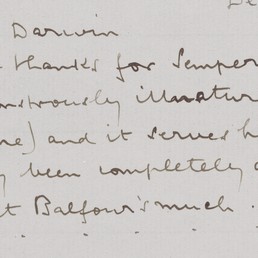 De
Darwin
thanks for Semper
nstrously illnatur
re) and it serves h
y been completely a
t Balfour's much.